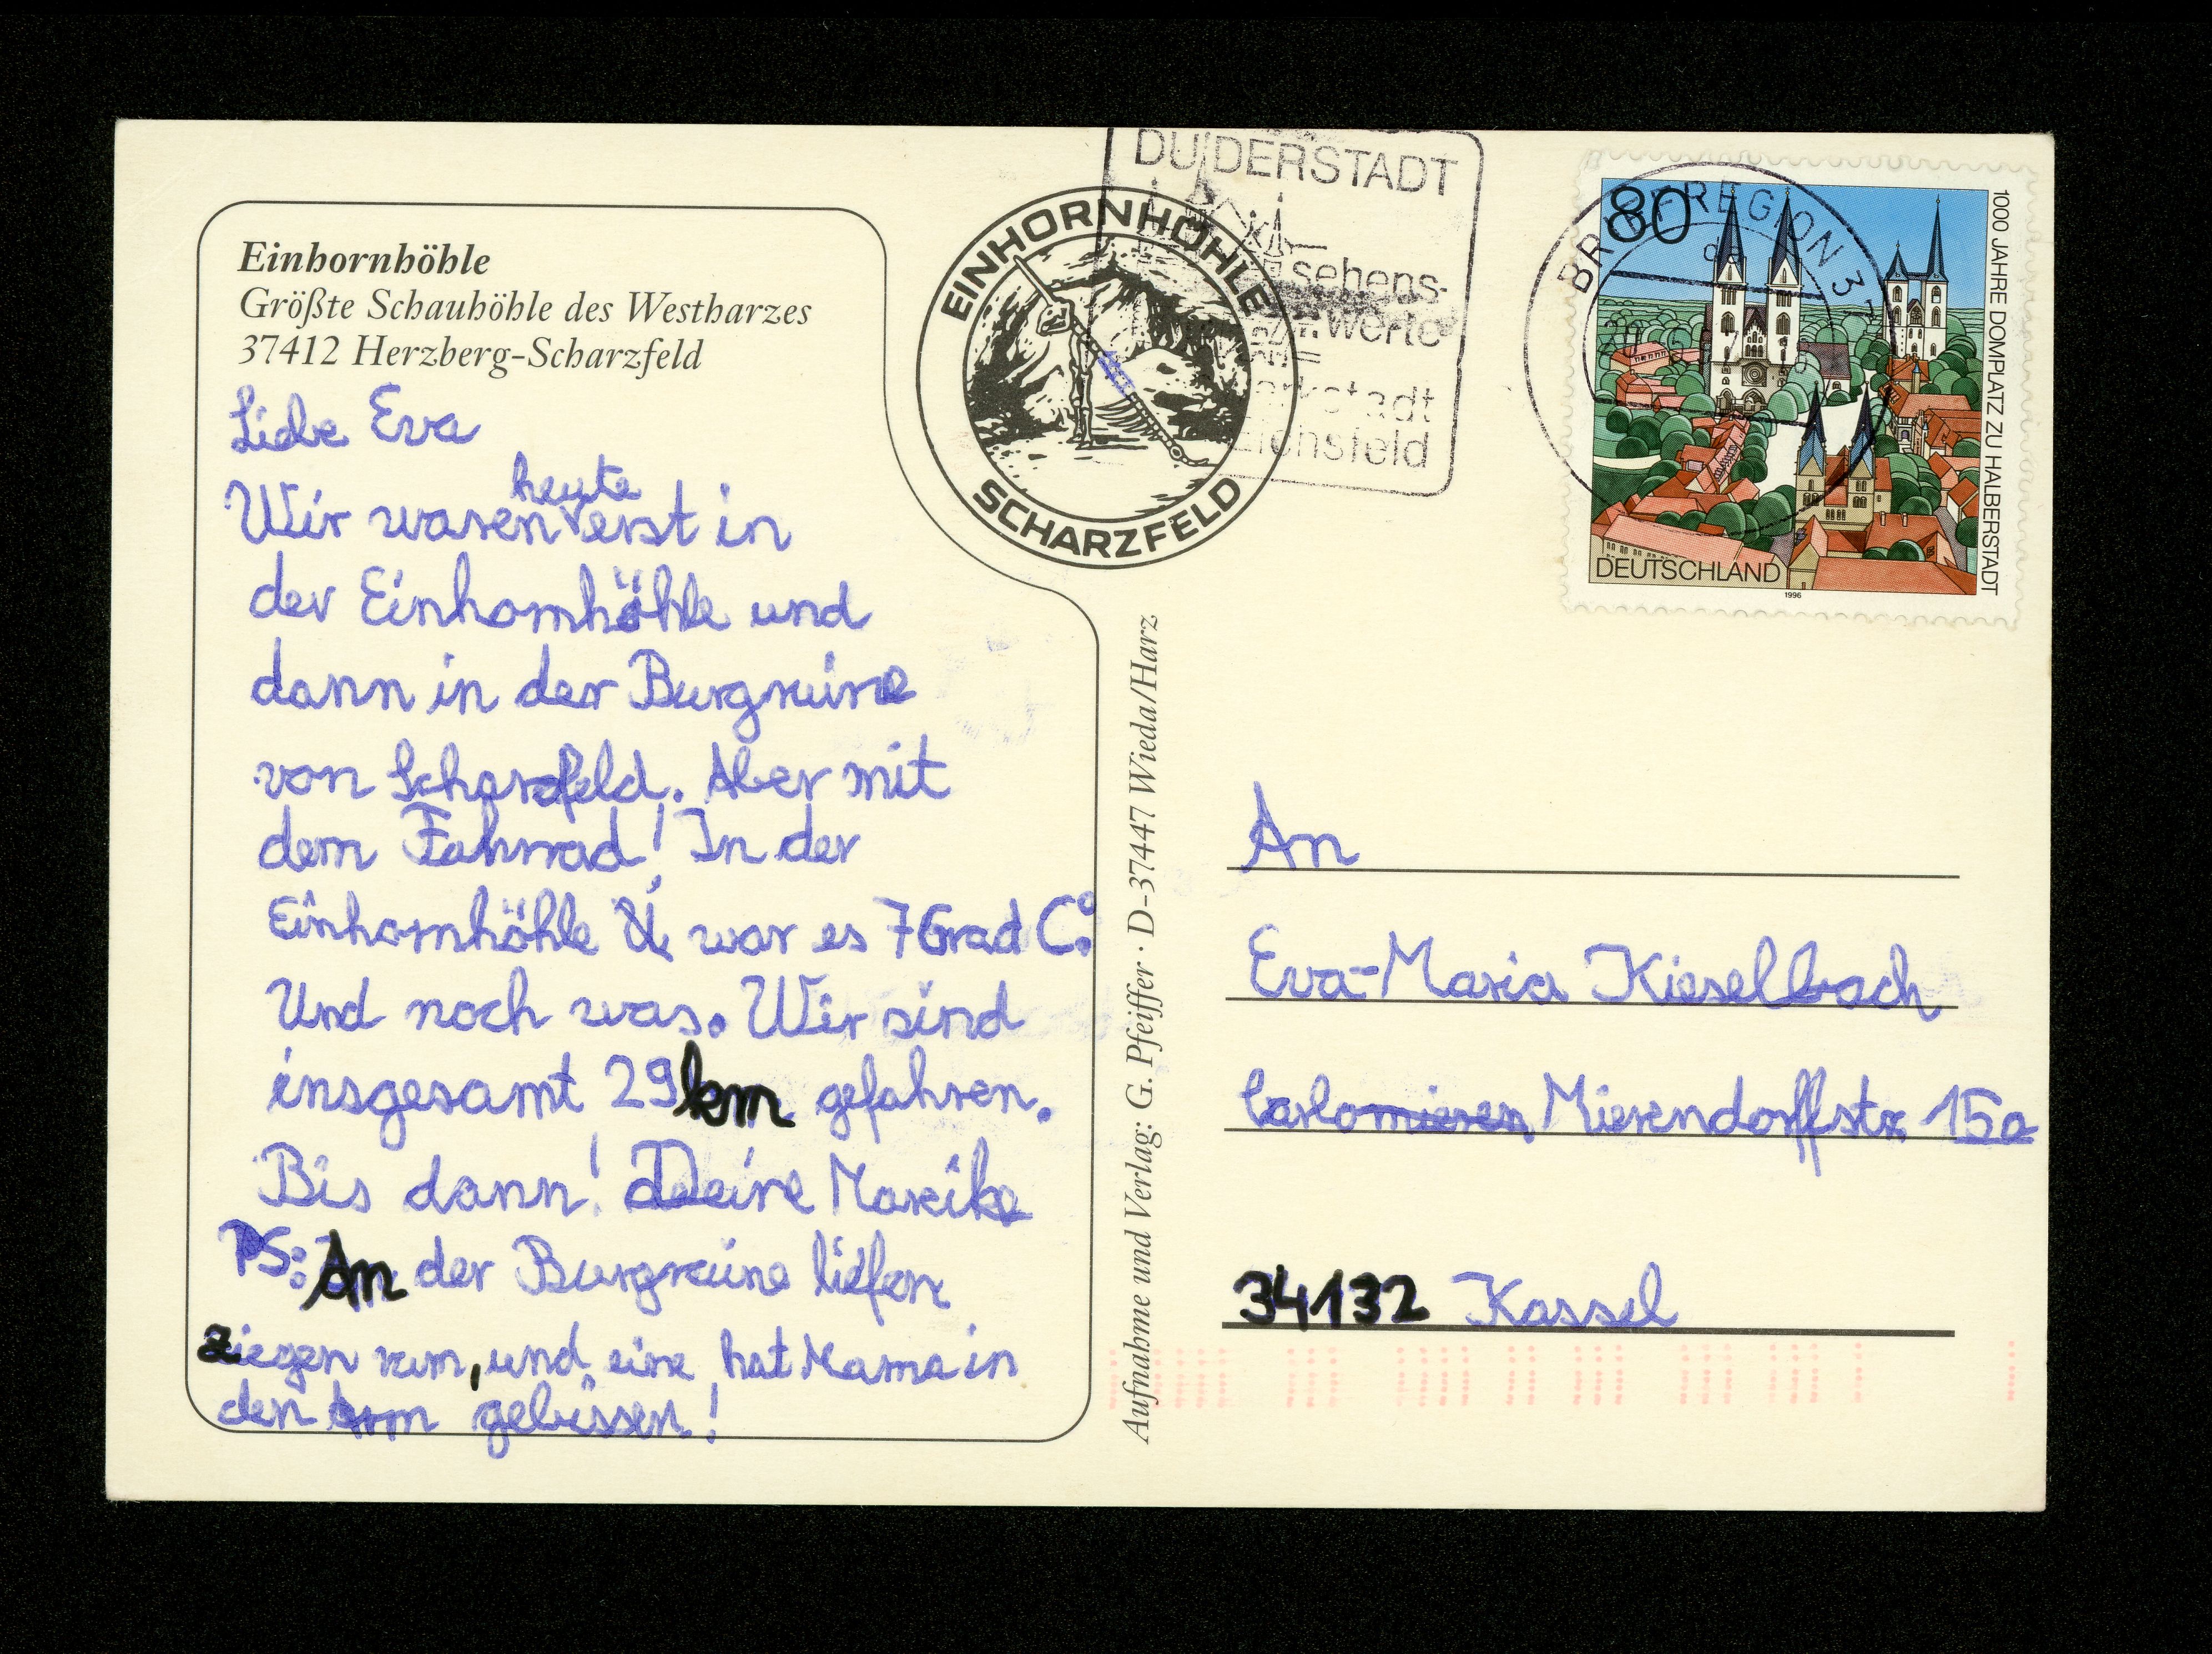 Einhornhöhle
Größte Schauhöhle des Westharzes
37412 Herzberg-Scharzfeld
Liebe Eva
heute
Wir waren erst in
der Einhornhöhle und
dann in der Burgruine
von Scharzfeld. Aber mit
dem Fahrrad! In der
Einhornhöhle war es 7Grad C°.
Und noch was. Wir sind
insgesamt 29km gefahren.
Bis dann! Deine Mareike
PS: An der Burgruine liefen
ziegen rum, und eine hat Mama in
den Arm gebissen!
EINHORNHÖHLE
SCHARZFELD
DUDERSTADT
sehens-
werte
Eichsfeld
BRIEFREGION 37
80
1000 JAHRE DOMPLATZ ZU HALBERSTADT
DEUTSCHLAND
1996
Aufnahme und Verlag: G. Pfeiffer · D-37447 Wieda/Harz
An
Eva-Maria Kieselbach
Carlo Mierendorffstr. 15a
34132 Kassel